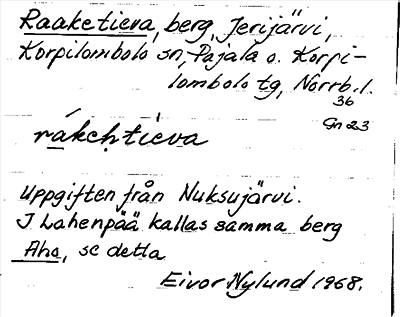 Raaketieva, berg, Jerijärvi,
Korpilombolo sn, Pajala o. Korpi-
lombolo tg, Norrb. l.
36
Gn 23
rákchtieva
Uppgiften från Nuksujärvi.
I Lahenpää kallas samma berg
Aho, se detta
Eivor Nylund 1968.